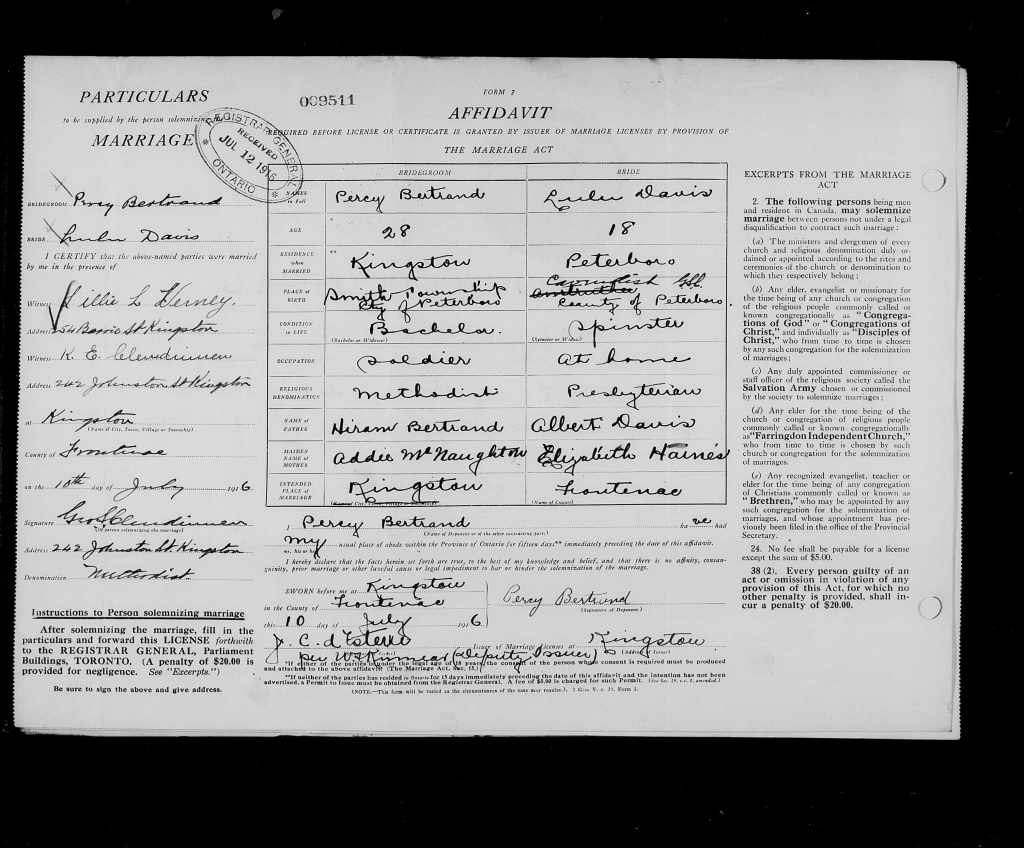 PARTICULARS
to be supplied by the person solemnizing
MARRIAGE
REGISTRAR GENERAL
RECEIVED
JUL 12 1916
ONTARIO
BRIDEGROOM Percy Bertrand
BRIDE Lulu Davis
I CERTIFY that the above-named parties were married
by me in the presence of
Witness
Address St Kingston
Witness K. E. Clendinnen
Address 242 Johnston St Kingston
at Kingston
(Name of City, Town, Village or Township)
County of Frontenac
on the 10th day of July 1916
Signature Geo S Clendinnen
(Of person solemnizing the marriage)
Address 242 Johnston St. Kingston
Denomination Methodist.
Instructions to Person solemnizing marriage
After solemnizing the marriage, fill in the
particulars and forward this LICENSE forthwith
to the REGISTRAR GENERAL, Parliament
Buildings, TORONTO. (A penalty of $20.00 is
provided for negligence. See "Excerpts.")
Be sure to sign the above and give address.
009511
FORM 7
AFFIDAVIT
REQUIRED BEFORE LICENSE OR CERTIFICATE IS GRANTED BY ISSUER OF MARRIAGE LICENSES BY PROVISION OF
THE MARRIAGE ACT
BRIDEGROOM BRIDE
NAMES in full Percy Bertrand Lulu Davis
AGE 28 18
RESIDENCE when MARRIED ** Kingston Peterboro
PLACE of BIRTH Smith Township Cty of Peterboro County of Peterboro
CONDITION in LIFE Bachelor. Spinster
(Bachelor or Widower) (Spinster or Widow)
OCCUPATION Soldier At home
RELIGIOUS DENOMINATION Methodist Presbyterian
NAME of FATHER Hiram Bertrand Albert Davis
MAIDEN NAME of MOTHER Addie McNaughton Elizabeth Haines
INTENDED PLACE of MARRIAGE Kingston Frontenac
(Name of City, Town, Village or Township) (Name of County)
I, Percy Bertrand have had
(Name of Deponent or of the other contracting party)
my usual place of abode within the Province of Ontario for fifteen days** immediately preceding the date of this affidavit.
my, his or her
I hereby declare that the facts herein set forth are true, to the best of my knowledge and belief, and that there is no affinity, consan-
guinity, prior marriage or other lawful cause or legal impediment to bar or hinder the solemnization of the marriage.
SWORN before me at Kingston
in the County of Frontenac
this 10 day of July 1916
Percy Bertrand
(Signature of Deponent)
J. C. d'Esterre Issuer of Marriage Licenses at Kingston
per (Deputy Issuer) (Address of Issuer)
*If either of the parties is under the legal age of 18 years the consent of the person whose consent is required must be produced
and attached to the above affidavit. (The Marriage Act, Sec. 15.)
**If neither of the parties has resided in Ontario for 15 days immediately preceding the date of this affidavit and the intention has not been
advertised, a Permit to Issue must be obtained from the Registrar General. A fee of $5.00 is charged for such Permit.
(NOTE.—This form will be varied as the circumstances of the case may require.)
EXCERPTS FROM THE MARRIAGE
ACT
2. The following persons being men
and resident in Canada, may solemnize
marriage between persons not under a legal
disqualification to contract such marriage;
(a) The ministers and clergymen of every
church and religious denomination duly or-
dained or appointed according to the rites and
ceremonies of the church or denomination to
which they respectively belong;
(b) Any elder, evangelist or missionary for
the time being of any church or congregation
of the religious people commonly called or
known congregationally as "Congrega-
tions of God" or "Congregations of
Christ," and individually as "Disciples of
Christ," who from time to time is chosen
by any such congregation for the solemnization
of marriages;
(c) Any duly appointed commissioner or
staff officer of the religious society called the
Salvation Army chosen or commissioned
by the society to solemnize marriages;
(d) Any elder for the time being of the
church or congregation of religious people
commonly called or known congregationally
as "Farringdon Independent Church,"
who from time to time is chosen by such
church or congregation for the solemnization
of marriages.
(e) Any recognized evangelist, teacher or
elder for the time being of any congregation
of Christians commonly called or known as
"Brethren," who may be appointed by any
such congregation for the solemnization of
marriages, and whose appointment has pre-
viously been filed in the office of the Provincial
Secretary.
24. No fee shall be payable for a license
except the sum of $5.00.
38 (2). Every person guilty of an
act or omission in violation of any
provision of this Act, for which no
other penalty is provided, shall in-
cur a penalty of $20.00.